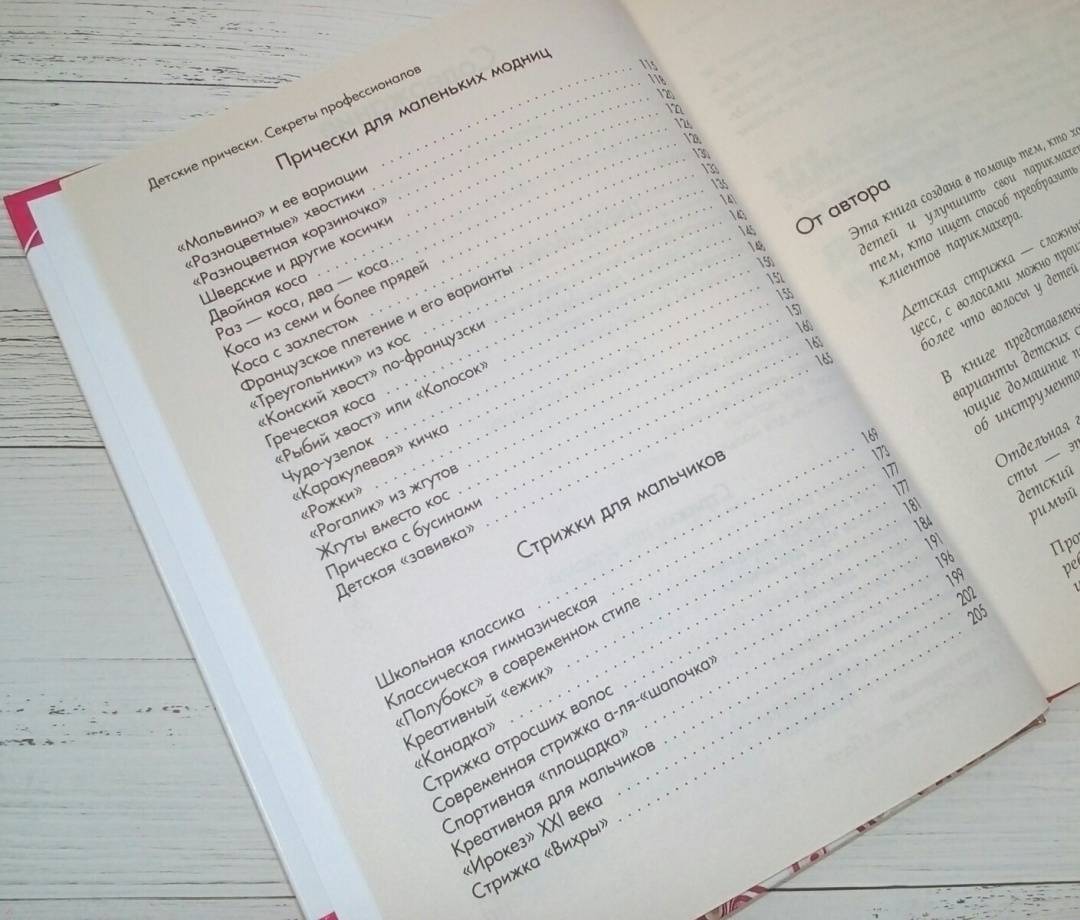 Детские прически. Секреты профессионалов
Прически для маленьких модниц
«Мальвина» и ее вариации 115
«Разноцветные» хвостики 118
«Разноцветная корзиночка» 120
Шведские и другие косички 122
Двойная коса 126
Раз — коса, два — коса... 128
Коса из семи и более прядей 130
Коса с захлестом 133
Французское плетение и его варианты 136
«Треугольники» из кос 141
«Конский хвост» по-французски 143
Греческая коса 145
«Рыбий хвост» или «Колосок» 148
Чудо-узелок 150
«Каракулевая» кичка 152
«Рожки» 155
«Рогалик» из жгутов 157
Жгуты вместо кос 160
Прическа с бусинами 163
Детская «завивка» 165
Стрижки для мальчиков
Школьная классика 169
Классическая гимназическая 173
«Полубокс» в современном стиле 177
Креативный «ежик» 177
«Канадка» 181
Стрижка отросших волос 184
Современная стрижка а-ля-«шапочка» 191
Спортивная «площадка» 196
Креативная для мальчиков 199
«Ирокез» XXI века 202
Стрижка «Вихры» 205
От автора
Эта книга создана в помощь тем, кто
детей и улучшить свои
тем, кто ищет способ преобразить
клиентов парикмахера.
Детская стрижка —
цесс, с волосами можно
более что волосы у детей
В книге
варианты детских
ющие домашние
об
Отдельная
сты —
детский
римый